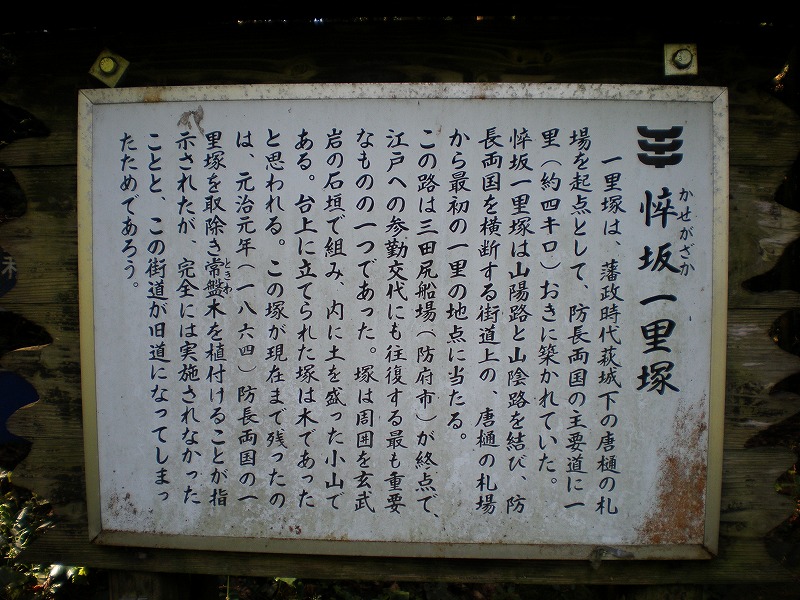 かせがざか
悴坂一里塚
一里塚は、藩政時代萩城下の唐樋の札
場を起点として、防長両国の主要道に一
里（約四キロ）おきに築かれていた。
悴坂一里塚は山陽路と山陰路を結び、防
長両国を横断する街道上の、唐樋の札場
から最初の一里の地点に当たる。
この路は三田尻船場（防府市）が終点で、
江戸への参勤交代にも往復する最も重要
なものの一つであった。塚は周囲を玄武
岩の石垣で組み、内に土を盛った小山で
ある。台上に立てられた塚は木であった
と思われる。この塚が現在まで残ったの
は、元治元年（一八六四）防長両国の一
里塚を取除き常盤木を植付けることが指
ときわ
示されたが、完全には実施されなかった
ことと、この街道が旧道になってしまっ
たためであろう。